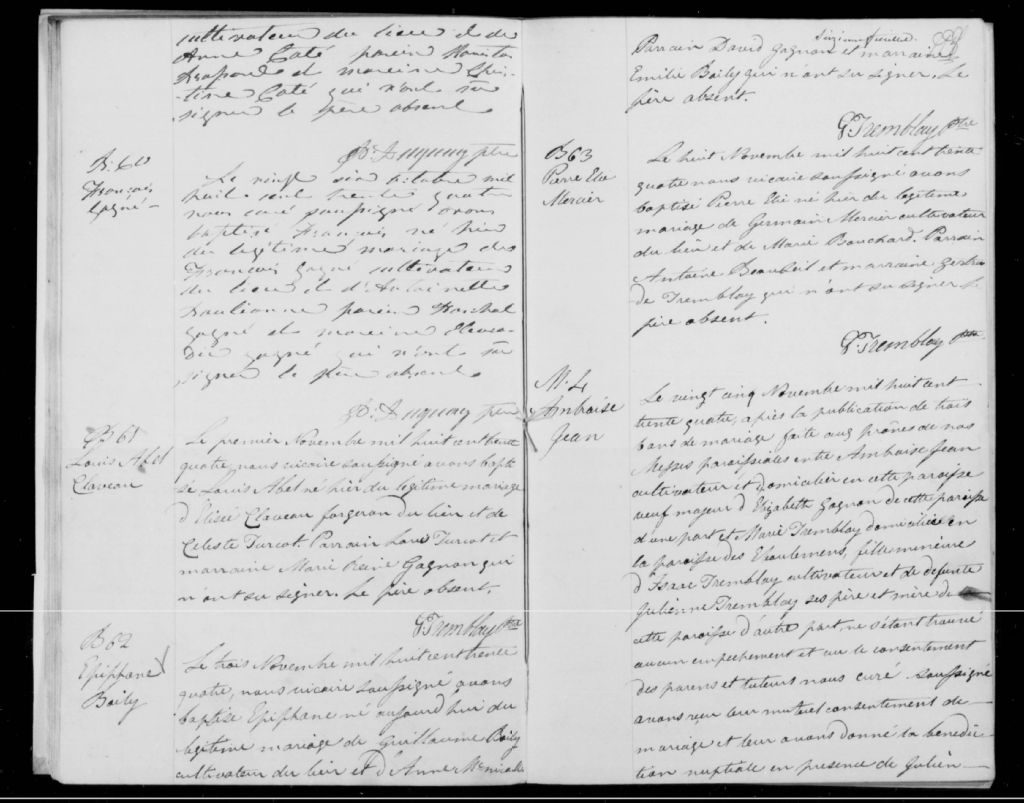 cultivateur du lieu et de
Anne Coté parein
et mareine
Coté qui n'ont su
signer le père absent
B. 60
François
Gagné
ptre
Le vingt six octobre mil
huit cent trente quatre
nous curé soussigné avons
baptisé François né hier
du légitime mariage de
François Gagné cultivateur
du lieu et d'Antoinette
parein Paschal
Gagné et mareine
Gagné qui n'ont su
signer le père absent
ptre
B 61
Louis Abel
Claveau
Le premier Novembre mil huit cent trente
quatre, nous vicaire soussigné avons bapti
sé Louis Abel né hier du légitime mariage
d'Elisée Claveau forgeron du lieu et de
Céleste Turcot. Parrain Turcot et
marraine Marie Reine Gagnon qui
n'ont su signer. Le père absent.
G Tremblay Ptre
B 62
Epiphane
Boily
Le trois Novembre mil huit cent trente
quatre, nous vicaire soussigné avons
baptisé Epiphane né aujourd'hui du
légitime mariage de Guillaume Boily
cultivateur du lieu et d'Anne
feuillet.
Parrain David Gagnon et marraine
Emilie Boily qui n'ont su signer. Le
père absent.
G Tremblay Ptre
B 63
Pierre Elie
Mercier
Le huit Novembre mil huit cent trente
quatre nous vicaire soussigné avons
baptisé Pierre Elie né hier du légitime
mariage de Germain Mercier cultivateur
du lieu et de Marie Bouchard. Parrain
Antoine et marraine
de Tremblay qui n'ont su signer
père absent.
G. Tremblay Ptre
M. 4
Ambroise
Jean
Le vingt cinq Novembre mil huit cent
trente quatre, après la publication de trois
bans de mariage faite aux prônes de nos
Messes paroissiales entre Ambroise Jean
cultivateur et domicilier en cette paroisse
veuf majeur d'Elizabeth Gagnon de cette paroisse
d'une part et Marie Tremblay domiciliée en
la paroisse des Eboulemens, fille mineure
d'Isaac Tremblay cultivateur et de defunte
Julienne Tremblay ses père et mère de
cette paroisse d'autre part, ne s'étant trouvé
aucun empechement et vu le consentement
des parens et tuteurs nous curé soussigné
avons reçu leur mutuel consentement de
mariage et leur avons donné la bénédic
tion nuptiale en presence de Julien